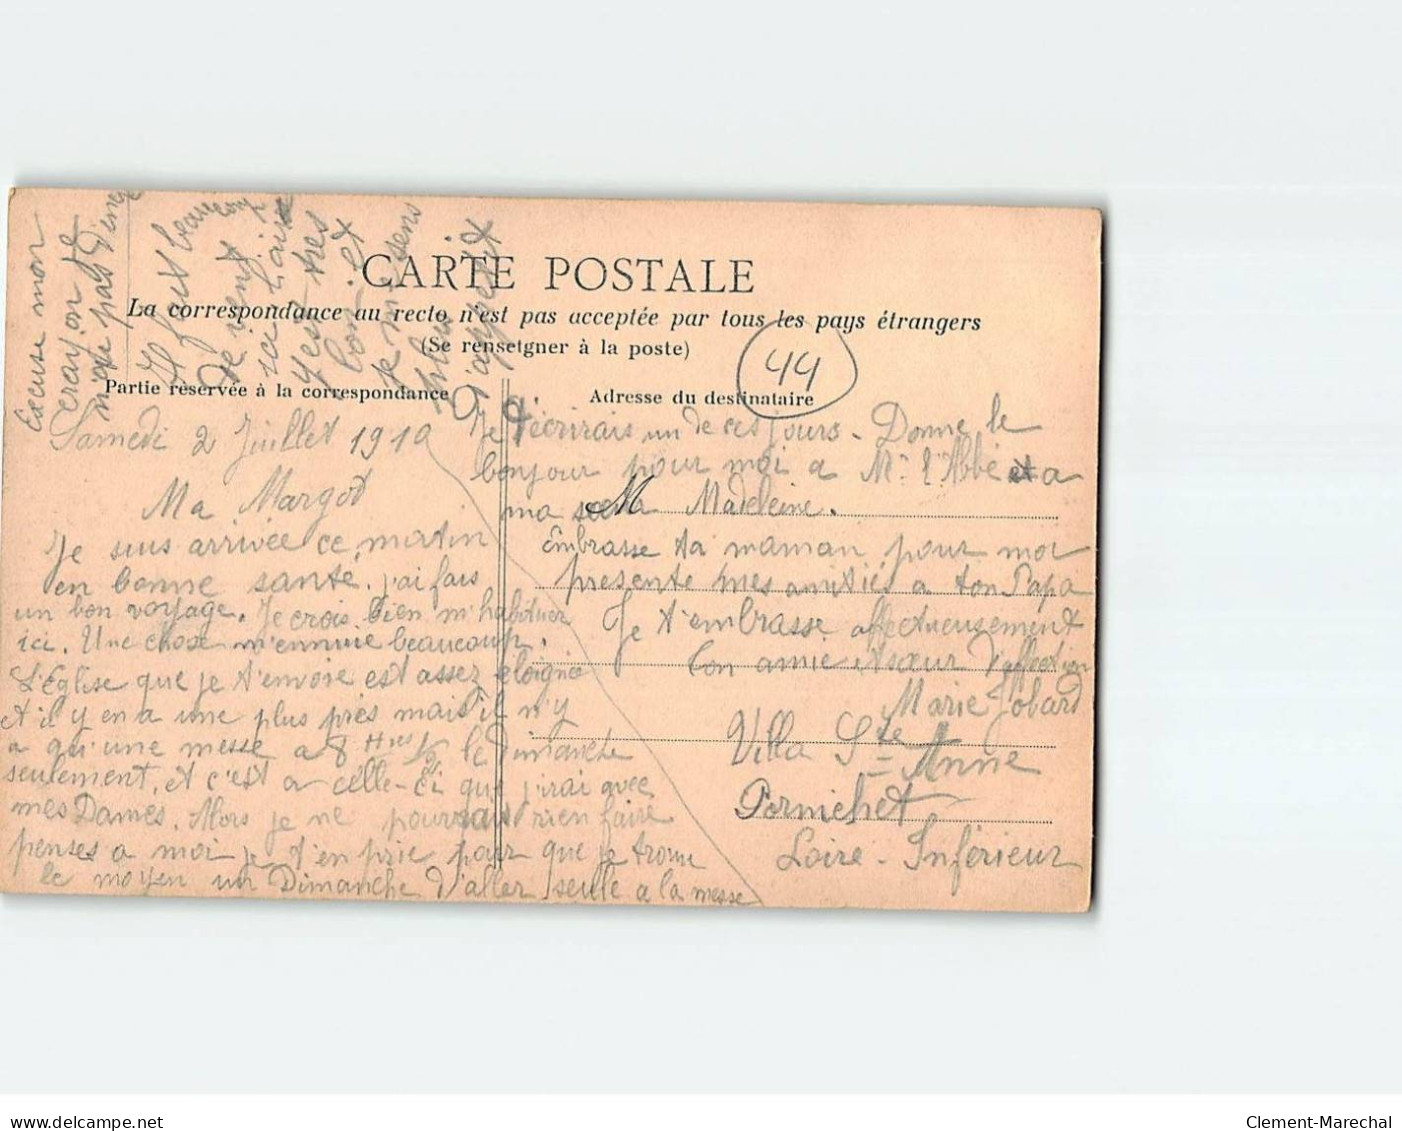 CARTE POSTALE
La correspondance au recto n'est pas acceptée par tous les pays étrangers
(Se renseigner à la poste)
Partie réservée à la correspondance
Adresse du destinataire
44
Samedi 2 Juillet 1910
Ma Margot
Je suis arrivée ce matin
en bonne santé. j'ai fais
un bon voyage. Je crois bien m'habituer
ici. Une chose m'ennuie beaucoup.
L'Eglise que je t'envoie est assez éloignée
et il y en a une plus près mais il n'y
a qu'une messe a 8 Hres 1/2 le Dimanche
seulement, et c'est a celle-ci que j'irai avec
mes Dames. Alors je ne pourrais rien faire
penses a moi je t'en prie pour que je trouve
le moyen un Dimanche d'aller seule a la messe
Je t'écrirais un de ces jours. Donne le
bonjour pour moi a Mr l'Abbé et a
ma Madeleine.
Embrasse ta maman pour moi
presente mes amitiés a ton Papa
Je t'embrasse affectueusement
ton amie et sœur d'affection
Marie Jobard
Villa Ste Anne
Pornichet
Loire-Inférieur
Excuse mon
crayon de
Il fait beaucoup
de vent
ici l'air
y est très
bon. et
je me sens
plus
d'appetit
Clement-Marechal
www.delcampe.net